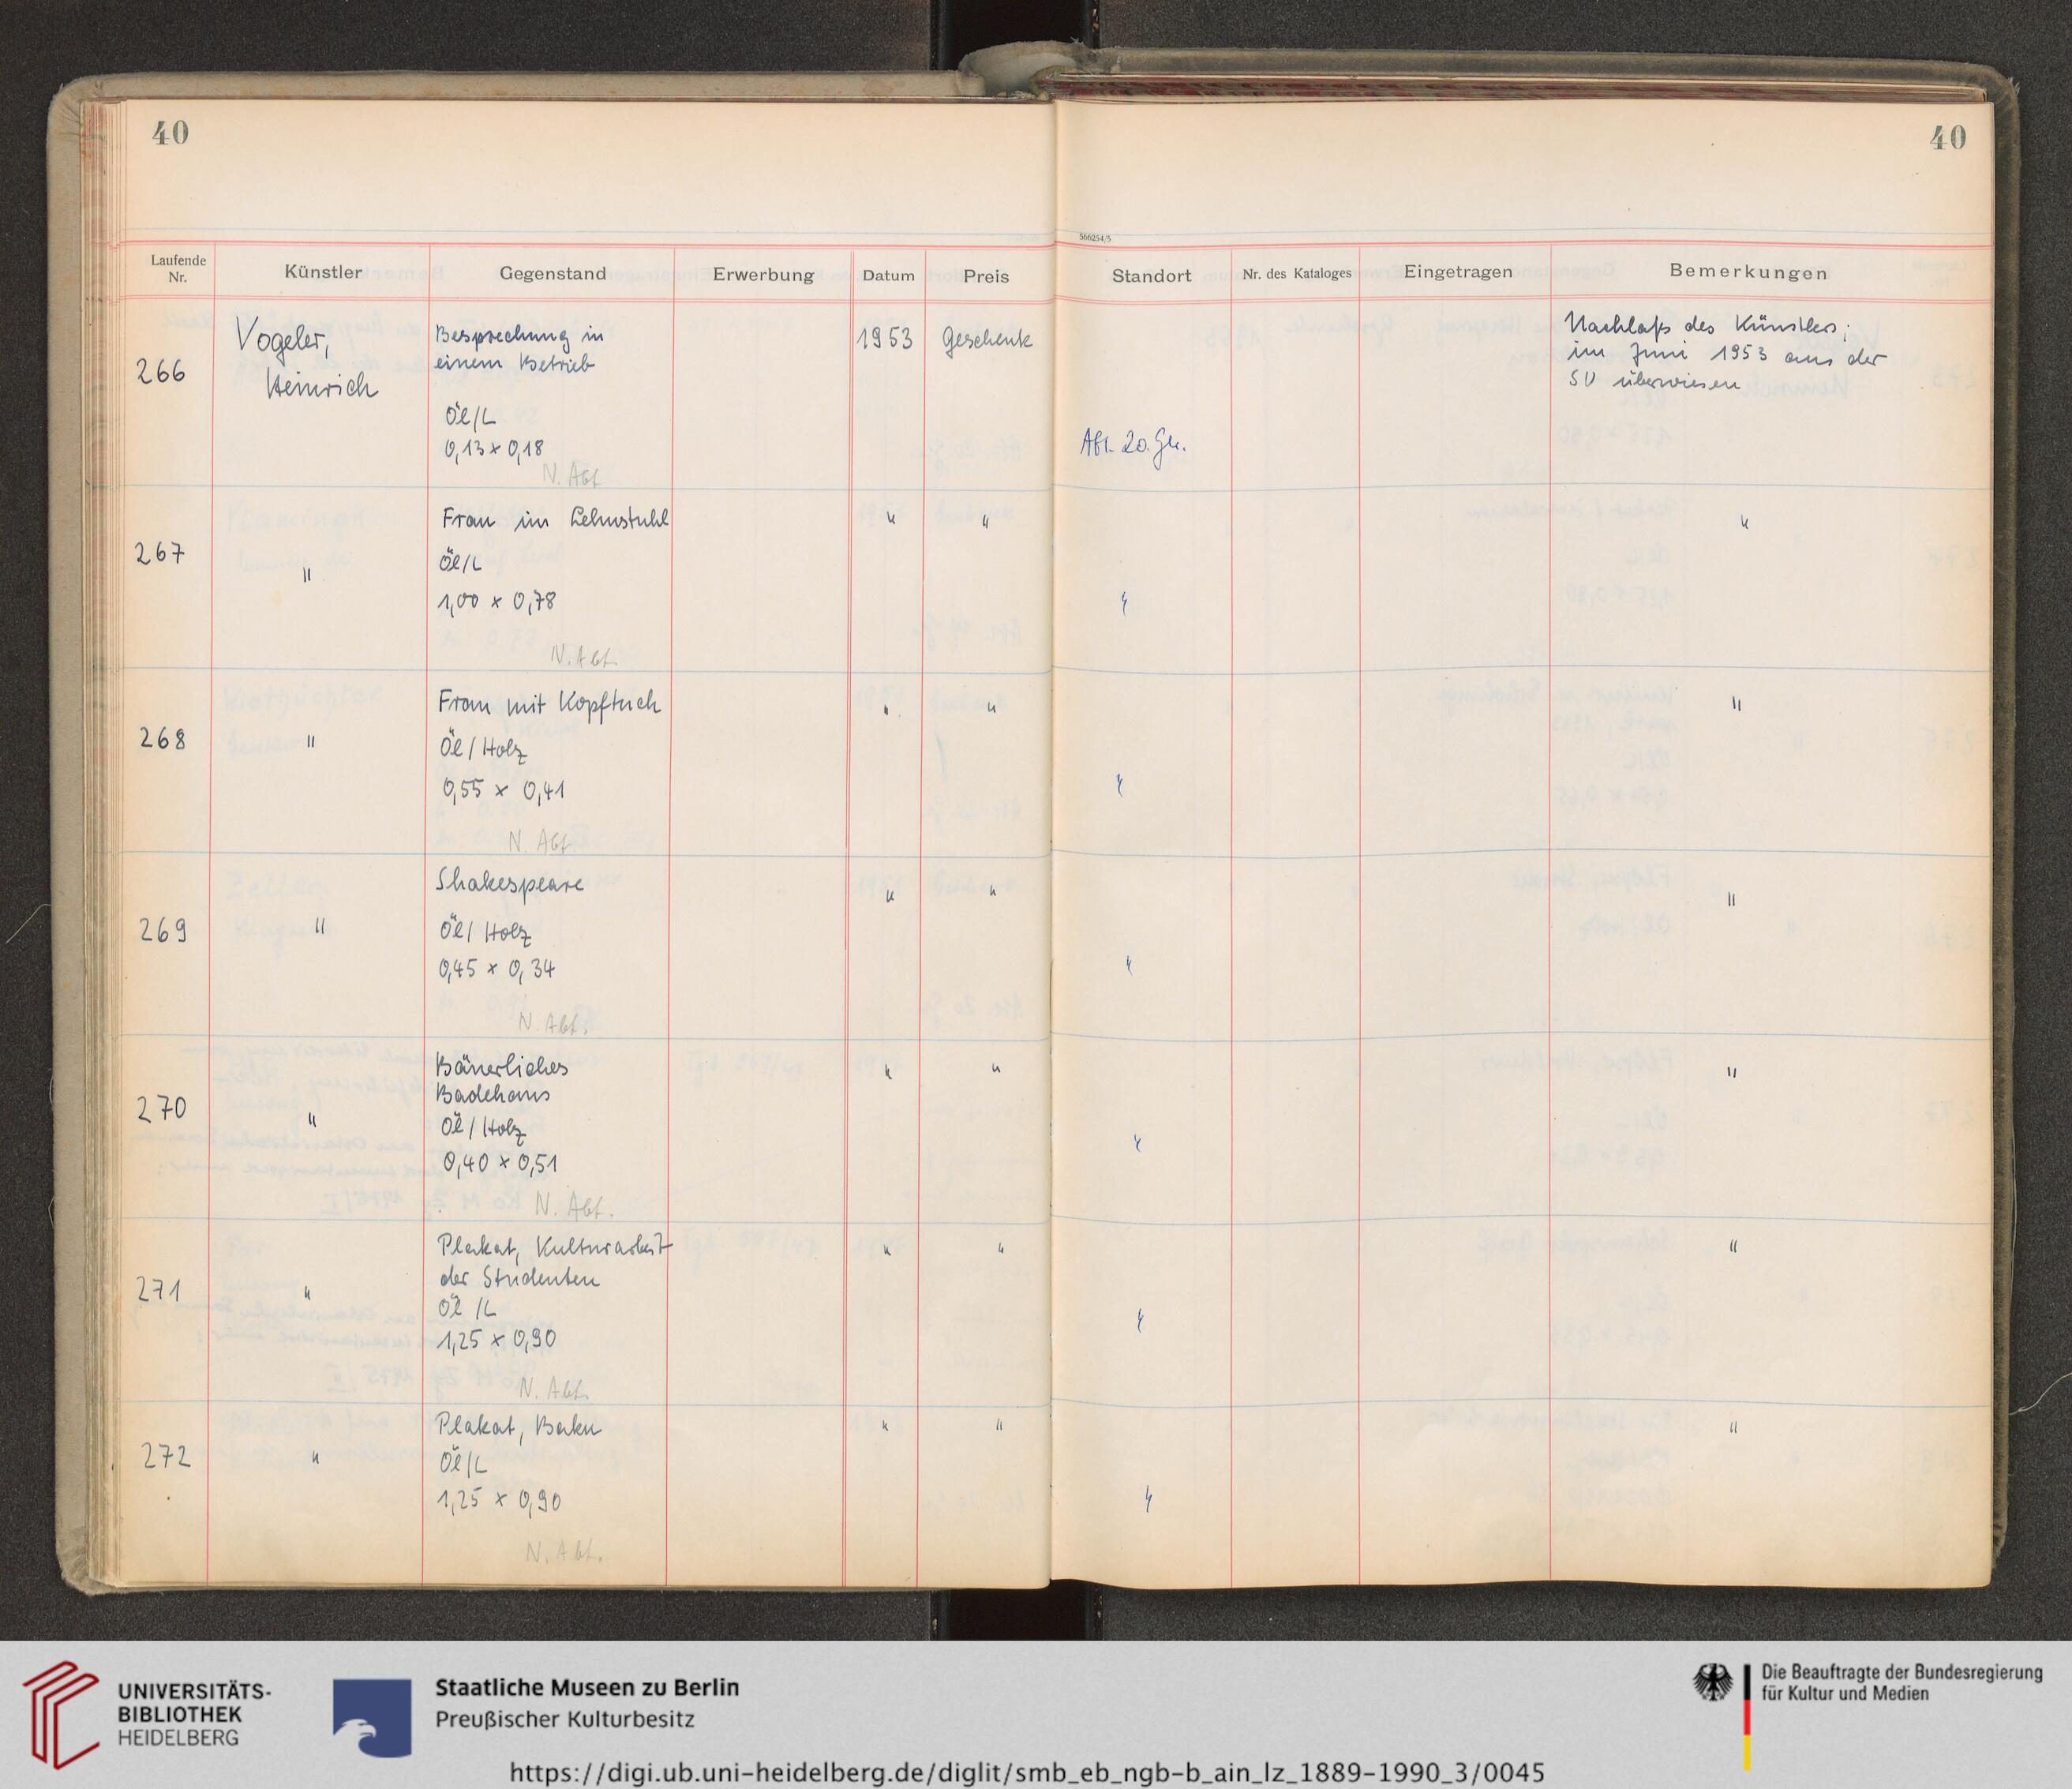 40
40
566254/5
Laufende Nr.
Künstler
Gegenstand
Erwerbung
Datum
Preis
Standort
Nr. des Kataloges
Eingetragen
Bemerkungen
266
Vogeler,
Heinrich
Besprechung in
einem Betrieb
Öl/L
0,13 x 0,18
N. Abt
1953
Geschenk
Abt. 20. Jh.
Nachlaß des Künstlers;
im Juni 1953 aus der
SU überwiesen
267
"
Frau im Lehnstuhl
Öl/L
1,00 x 0,78
N. Abt.
"
"
"
"
268
"
Frau mit Kopftuch
Öl/Holz
0,55 x 0,41
N. Abt
"
"
"
"
269
"
Shakespeare
Öl/Holz
0,45 x 0,34
N. Abt.
"
"
"
"
270
"
Bäuerliches
Badehaus
Öl/Holz
0,40 x 0,51
N. Abt.
"
"
"
"
271
"
Plakat, Kulturarbeit
der Studenten
Öl/L
1,25 x 0,90
N. Abt.
"
"
"
"
272
"
Plakat, Baku
Öl/L
1,25 x 0,90
N. Abt.
"
"
"
"
UNIVERSITÄTS-
BIBLIOTHEK
HEIDELBERG
Staatliche Museen zu Berlin
Preußischer Kulturbesitz
Die Beauftragte der Bundesregierung
für Kultur und Medien
https://digi.ub.uni-heidelberg.de/diglit/smb_eb_ngb-b_ain_lz_1889-1990_3/0045